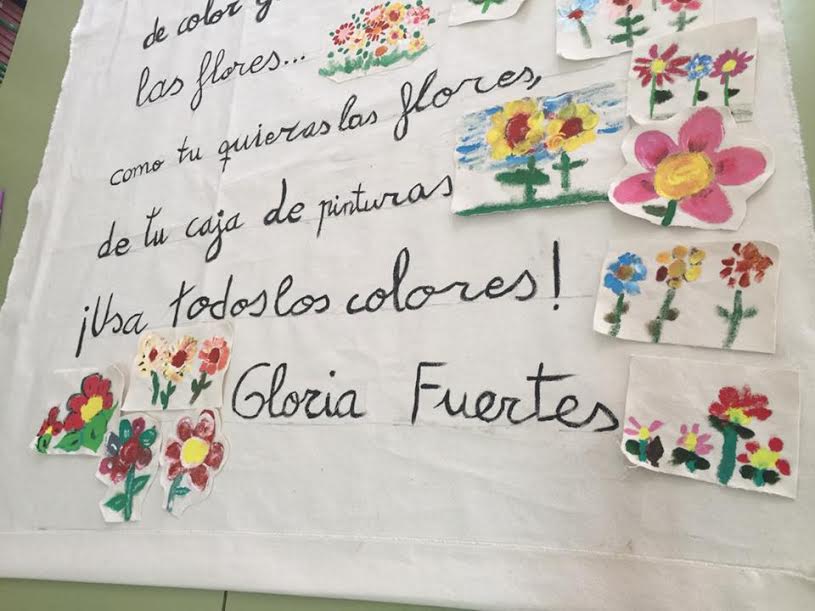 de color y
las flores...
como tu quieras las flores,
de tu caja de pinturas
¡Usa todos los colores!
Gloria Fuertes